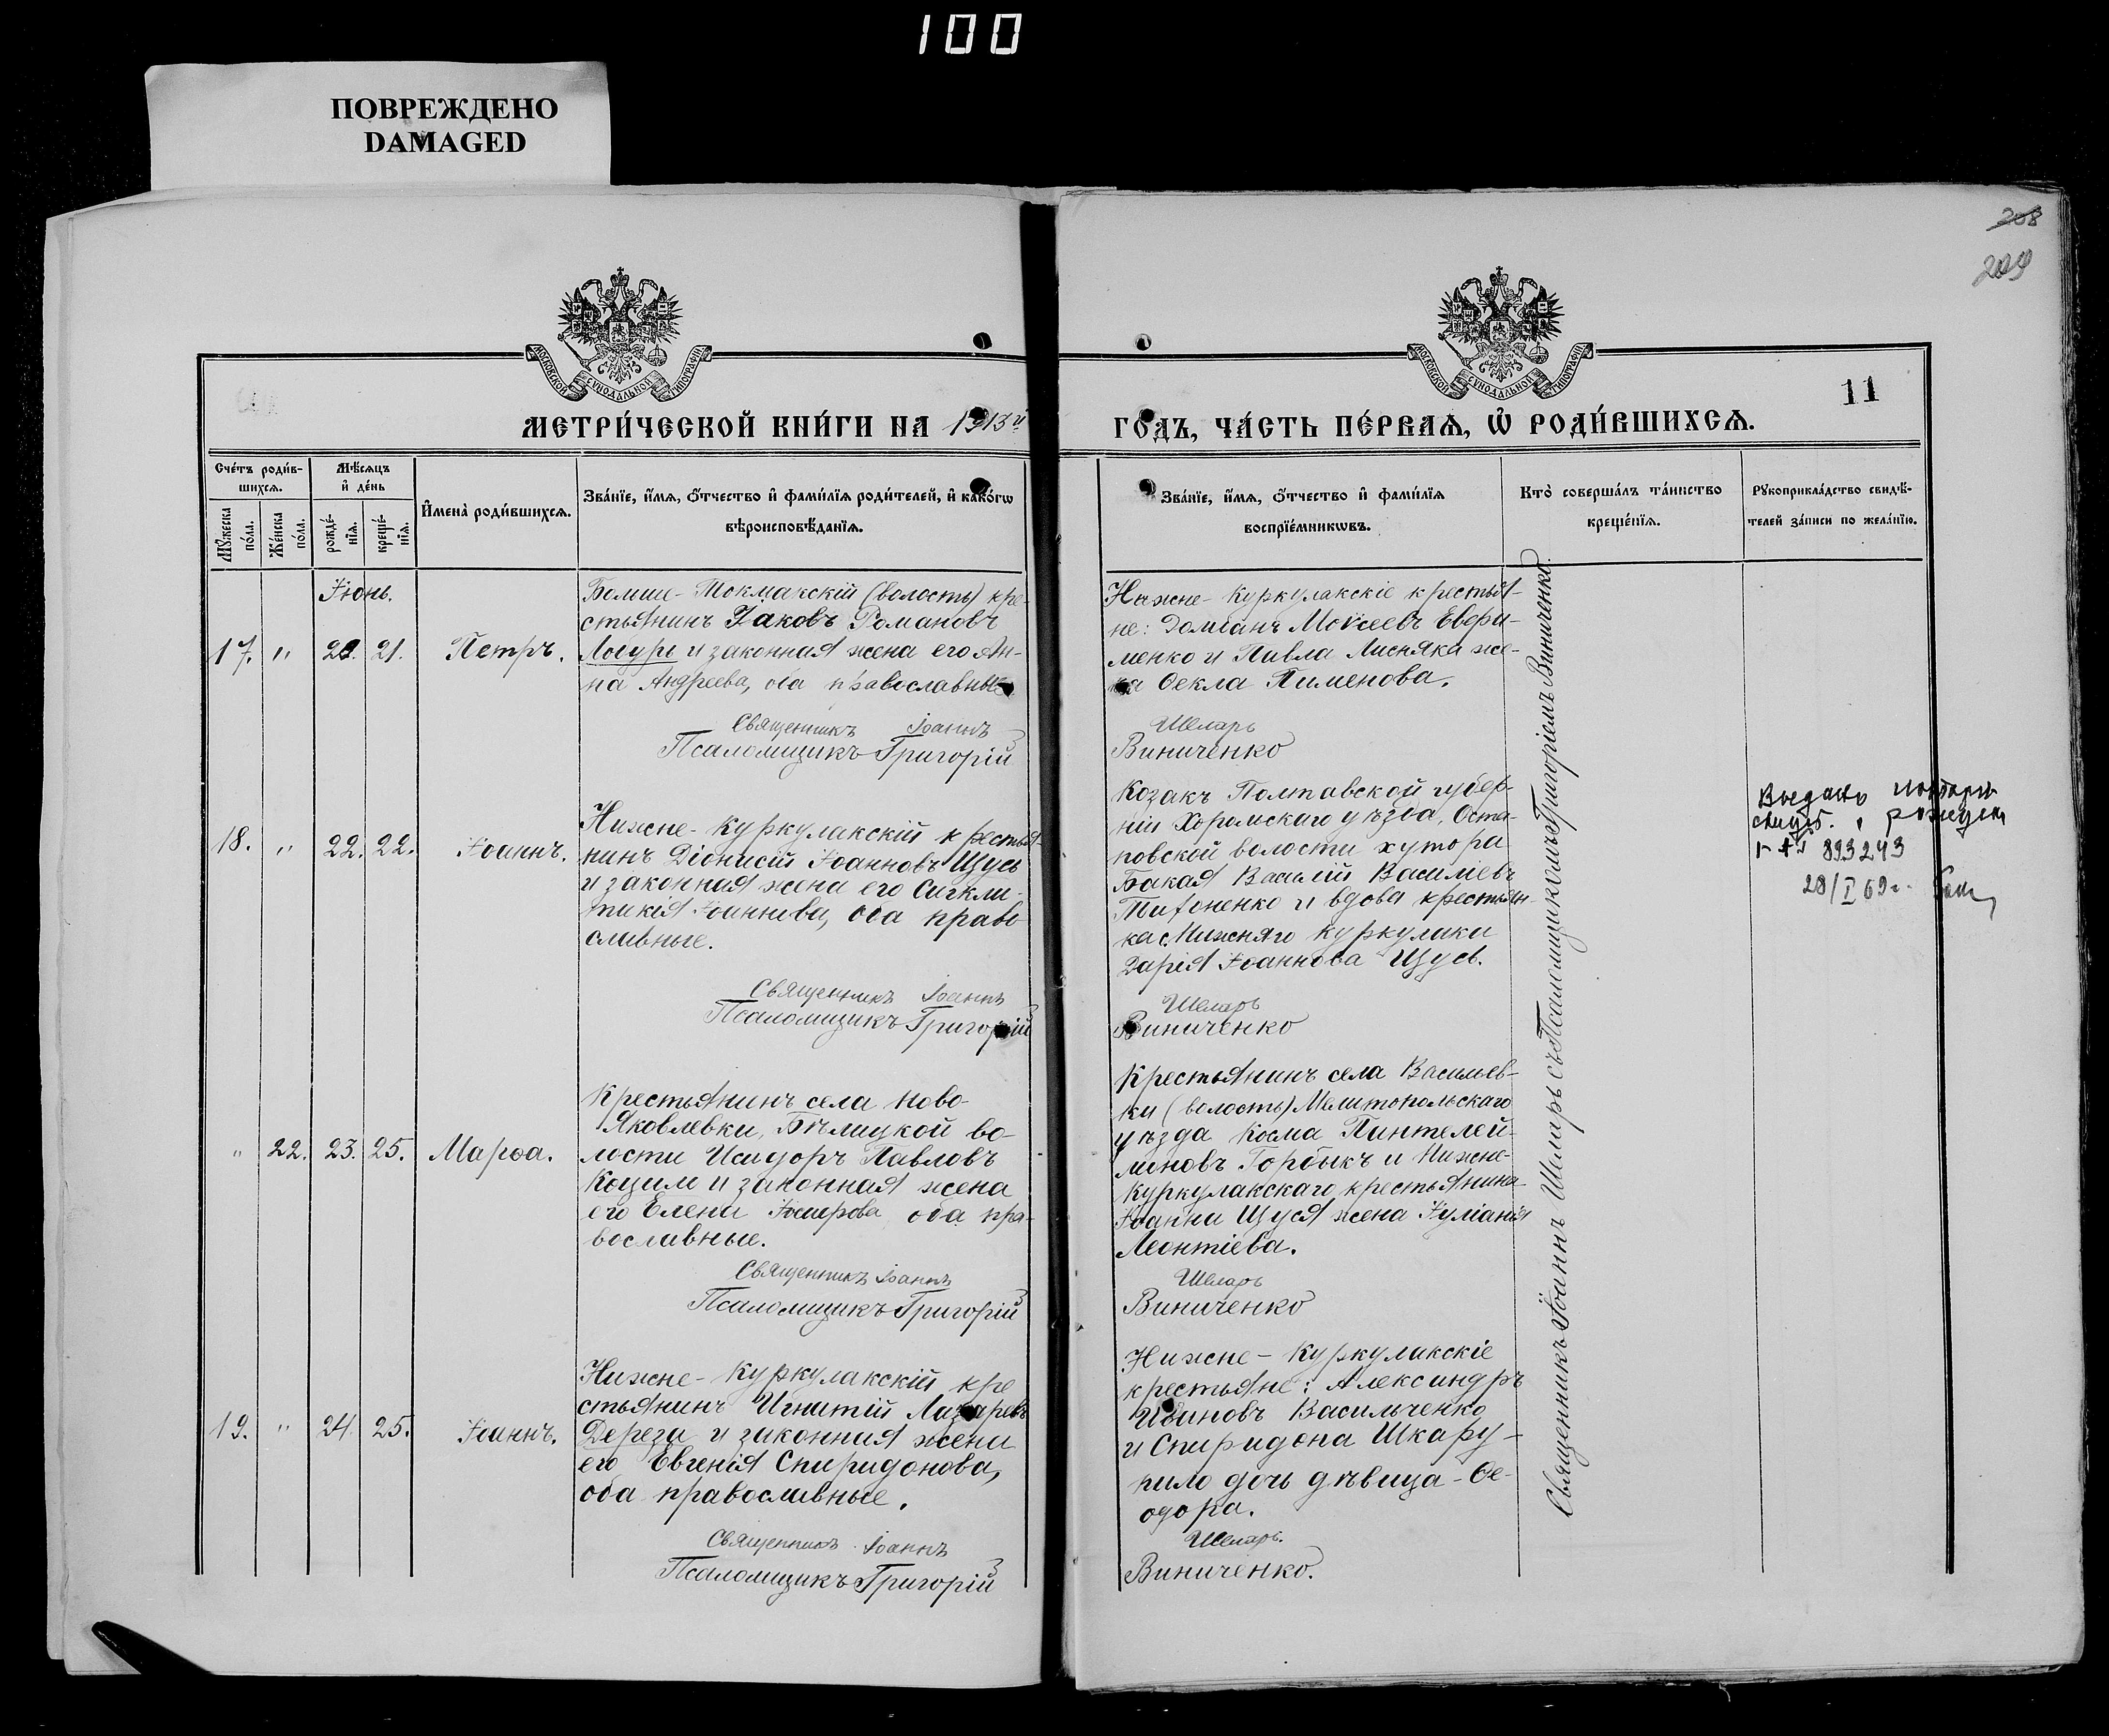 100
ПОВРЕЖДЕНО
DAMAGED
208
209
МОСКОВСКОЙ СѴНОДАЛЬНОЙ ТИПОГРАФІИ
МОСКОВСКОЙ СѴНОДАЛЬНОЙ ТИПОГРАФІИ
11
МЕТРИ́ЧЕСКОЙ КНИ́ГИ НА 1913й ГОДЪ, ЧА́СТЬ ПЕ́РВАѦ, Ѡ҆ РОДИ́ВШИХСѦ.
Сче́тъ роди́в-
шихсѧ.
Мѣсѧцъ
и҆ де́нь
Мꙋ́жеска
по́ла.
Же́нска
по́ла.
рожде́-
нїѧ.
креще́-
нїѧ.
И҆мена̀ роди́вшихсѧ.
Зва́нїе, и҆́мѧ, ѻ҆́тчество и҆ фами́лїѧ роди́телей, и҆ како́гѡ
вѣроисповѣ́данїѧ.
Зва́нїе, и҆́мѧ, ѻ҆́тчество и҆ фами́лїѧ
воспрїе́мникѡвъ.
Кто̀ соверша́лъ та́инство
креще́нїѧ.
Рꙋкоприкла́дство свидѣ́-
телей за́писи по жела́нїю.
Іюнь.
17. " 20. 21. Петръ.
Больше-Токмакскій (волость) кре-
стьянинъ Іаковъ Романовъ
Логуръ и законная жена его Ан-
на Андреева, оба православные
Священникъ Іоаннъ
Псаломщикъ Григорій
Нижне-Куркулакскіе крестья-
не: Доміанъ Моѵсеевъ Евфи-
менко и Павла Лисняка же-
на Ѳекла Пименова.
Шеларь
Виниченко
18. " 22. 22. Іоаннъ.
Нижне-Куркулакскій крестья-
нинъ Діонисій Іоанновъ Щусь
и законная жена его Сигкли-
тикія Іоаннова, оба право-
славные.
Священникъ Іоаннъ
Псаломщикъ Григорій
Козакъ Полтавской губер-
ніи Хорольскаго уѣзда, Оста-
повской волости хутора
Бакая Василій Васильевъ
Тихоненко и вдова крестьян-
ка с. Нижняго Куркулака
Дарія Іоаннова Щусь.
Шеларь
Виниченко
893243
28/I 69 г.
" 22. 23. 25. Марѳа.
Крестьянинъ села Ново-
Яковлевки, Бѣлицкой во-
лости Исидоръ Павловъ
Коцим и законная жена
его Елена Іосифова оба пра-
вославные.
Священникъ Іоаннъ
Псаломщикъ Григорій
Крестьянинъ села Васильев-
ки (волость) Мелитопольскаго
уѣзда Косма Пантелей-
моновъ Горбыкъ и Нижне-
Куркулакскаго крестьянина
Іоанна Щуся жена Іуліанія
Леонтіева.
Шеларь
Виниченко
19. " 24. 25. Іоаннъ.
Нижне-Куркулакскій кре
стьянинъ Игнатій Лазаревъ
Дереза и законная жена
его Евгенія Спиридонова,
оба православные.
Священникъ Іоаннъ
Псаломщикъ Григорій
Нижне-Куркулакскіе
крестьяне: Александръ
Ивановъ Васильченко
и Спиридона Шкару-
пило дочь дѣвица-Ѳе-
одора.
Шеларь.
Виниченко.
Священникъ Іоаннъ Шеларь съ Псаломщикомъ Григоріемъ Виниченко.